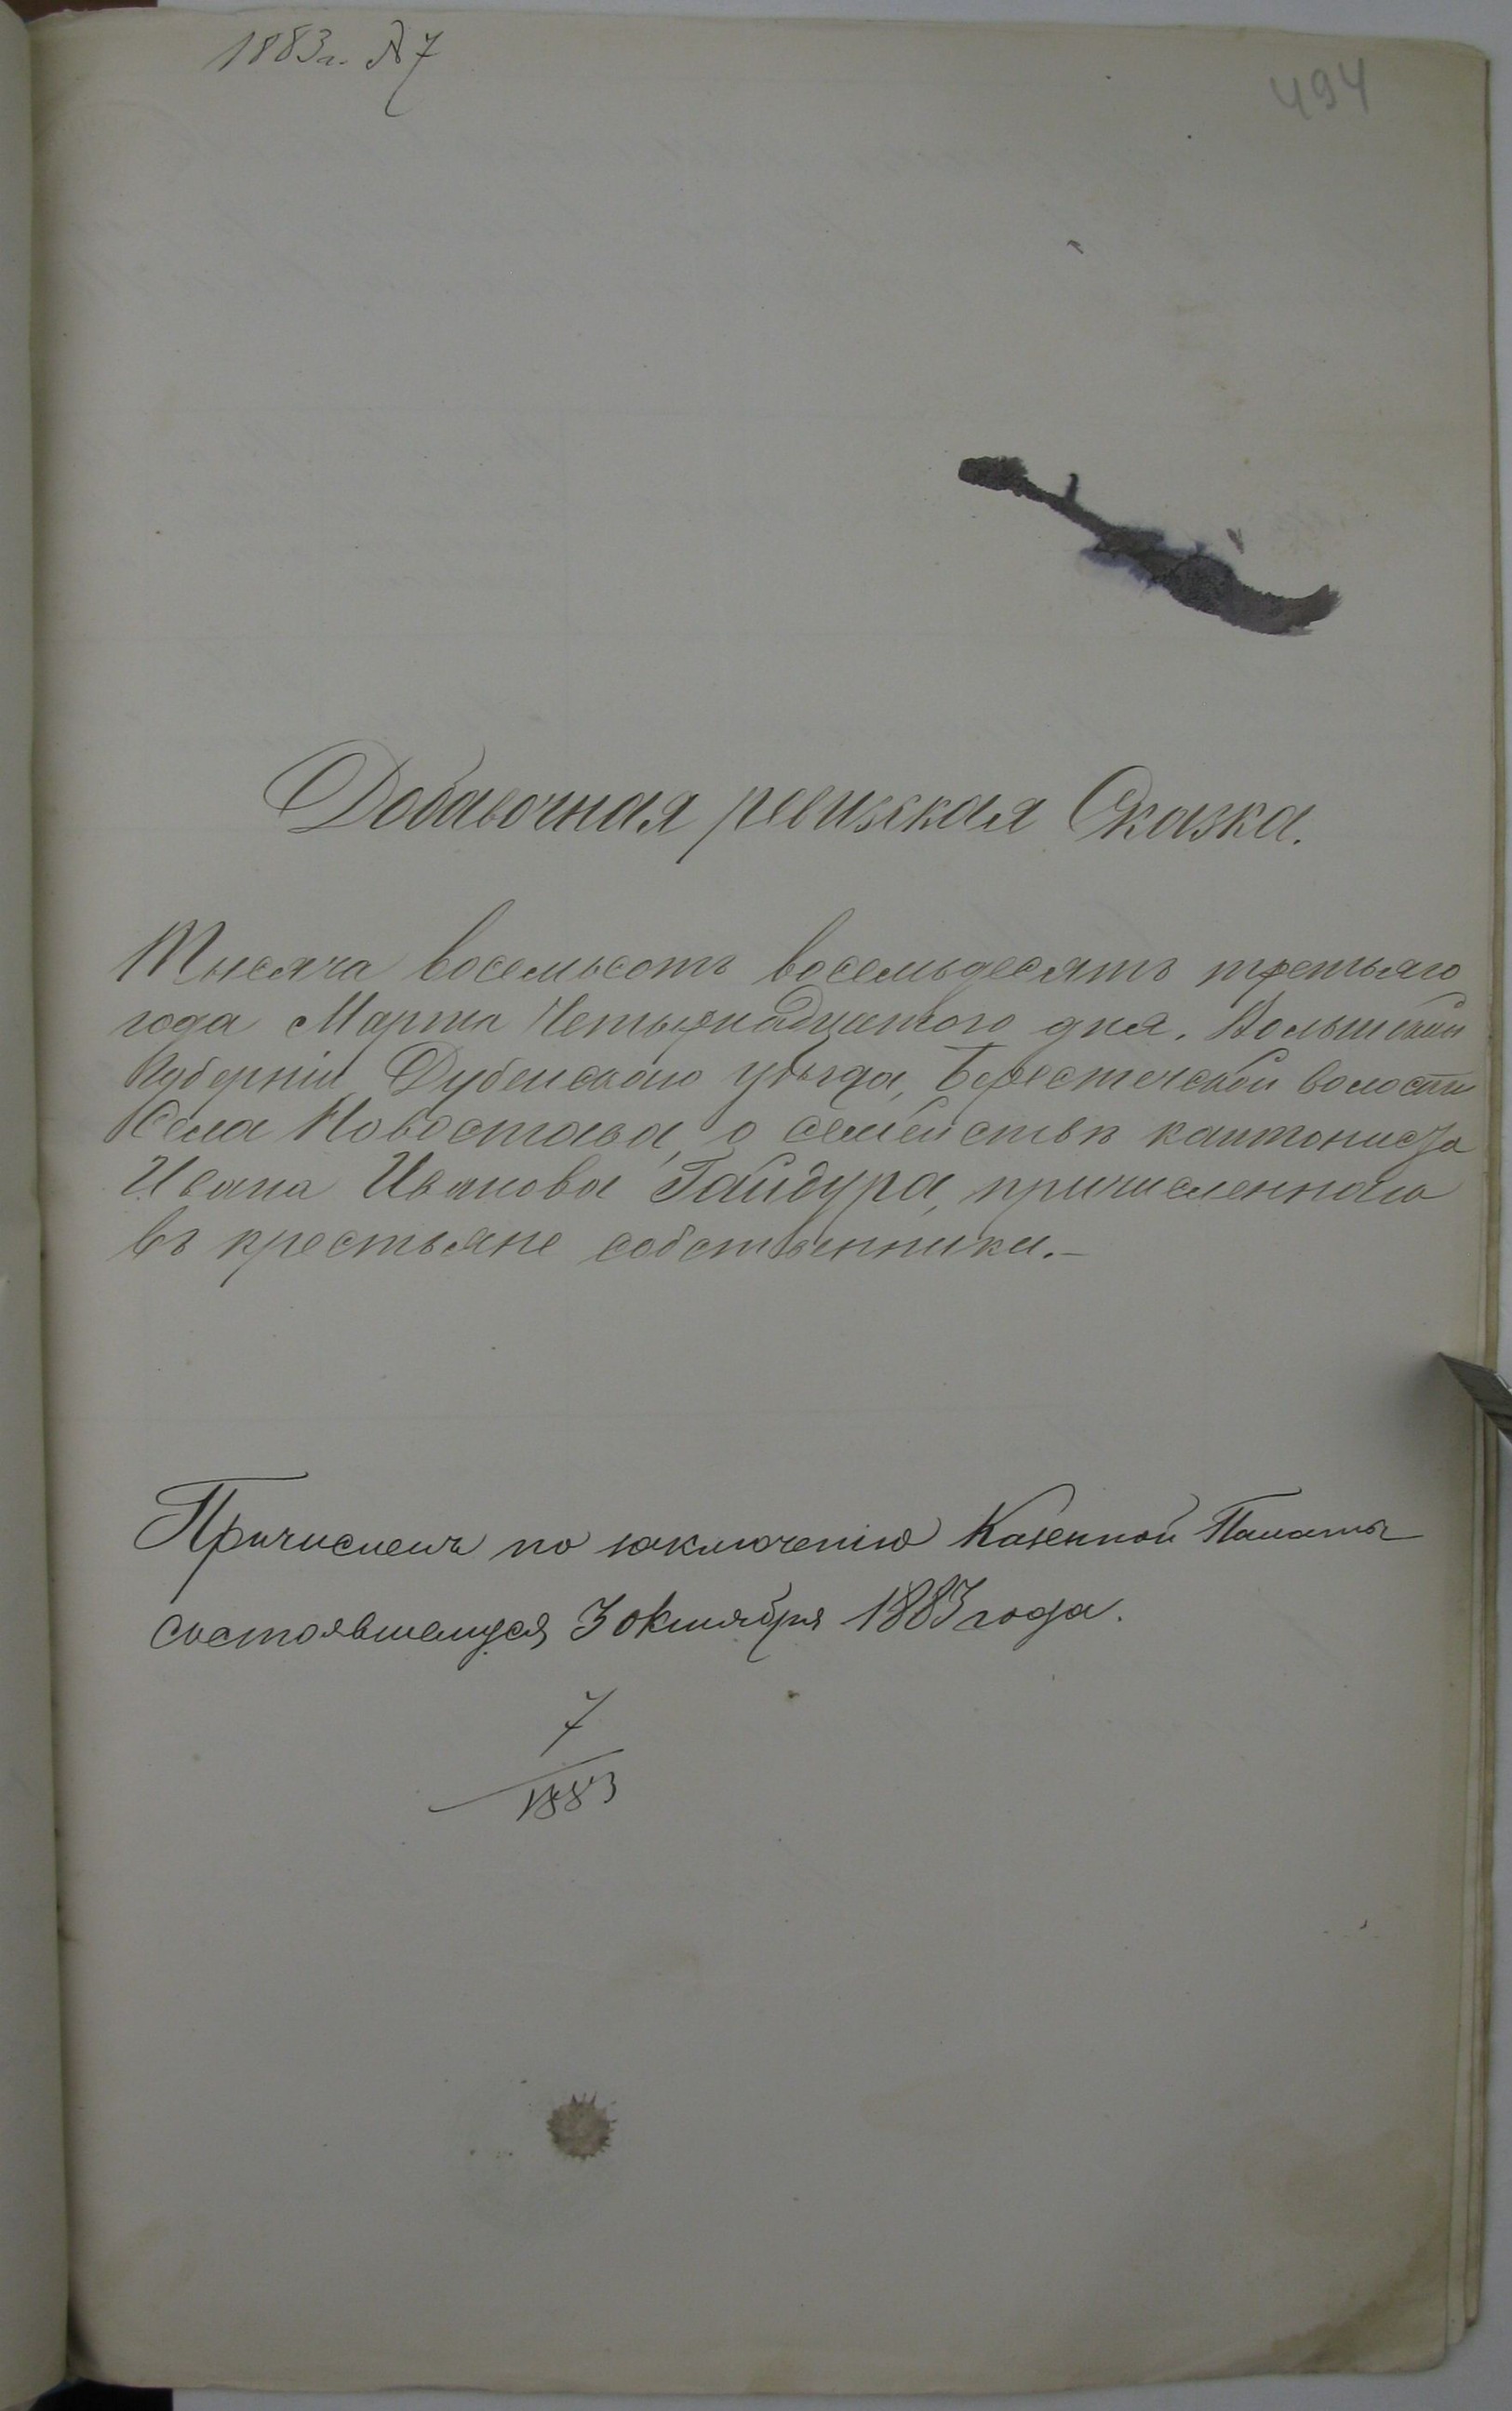 1883 г. № 7
494
Добавочная ревизская Сказка.
Тысяча восемьсотъ восемьдесятъ третьяго
года Марта Четырнадцатого дня. Волынской
Губерніи Дубенскаго уѣзда, Берестечской волости
Села Новостава, о семействѣ кантониста
Ивана Иванова Гайдура, причисленнаго
въ крестьяне собственники.–
Причисленъ по заключенію Казенной Палаты
состоявшемуся 3 октября 1883 года.
7
1883